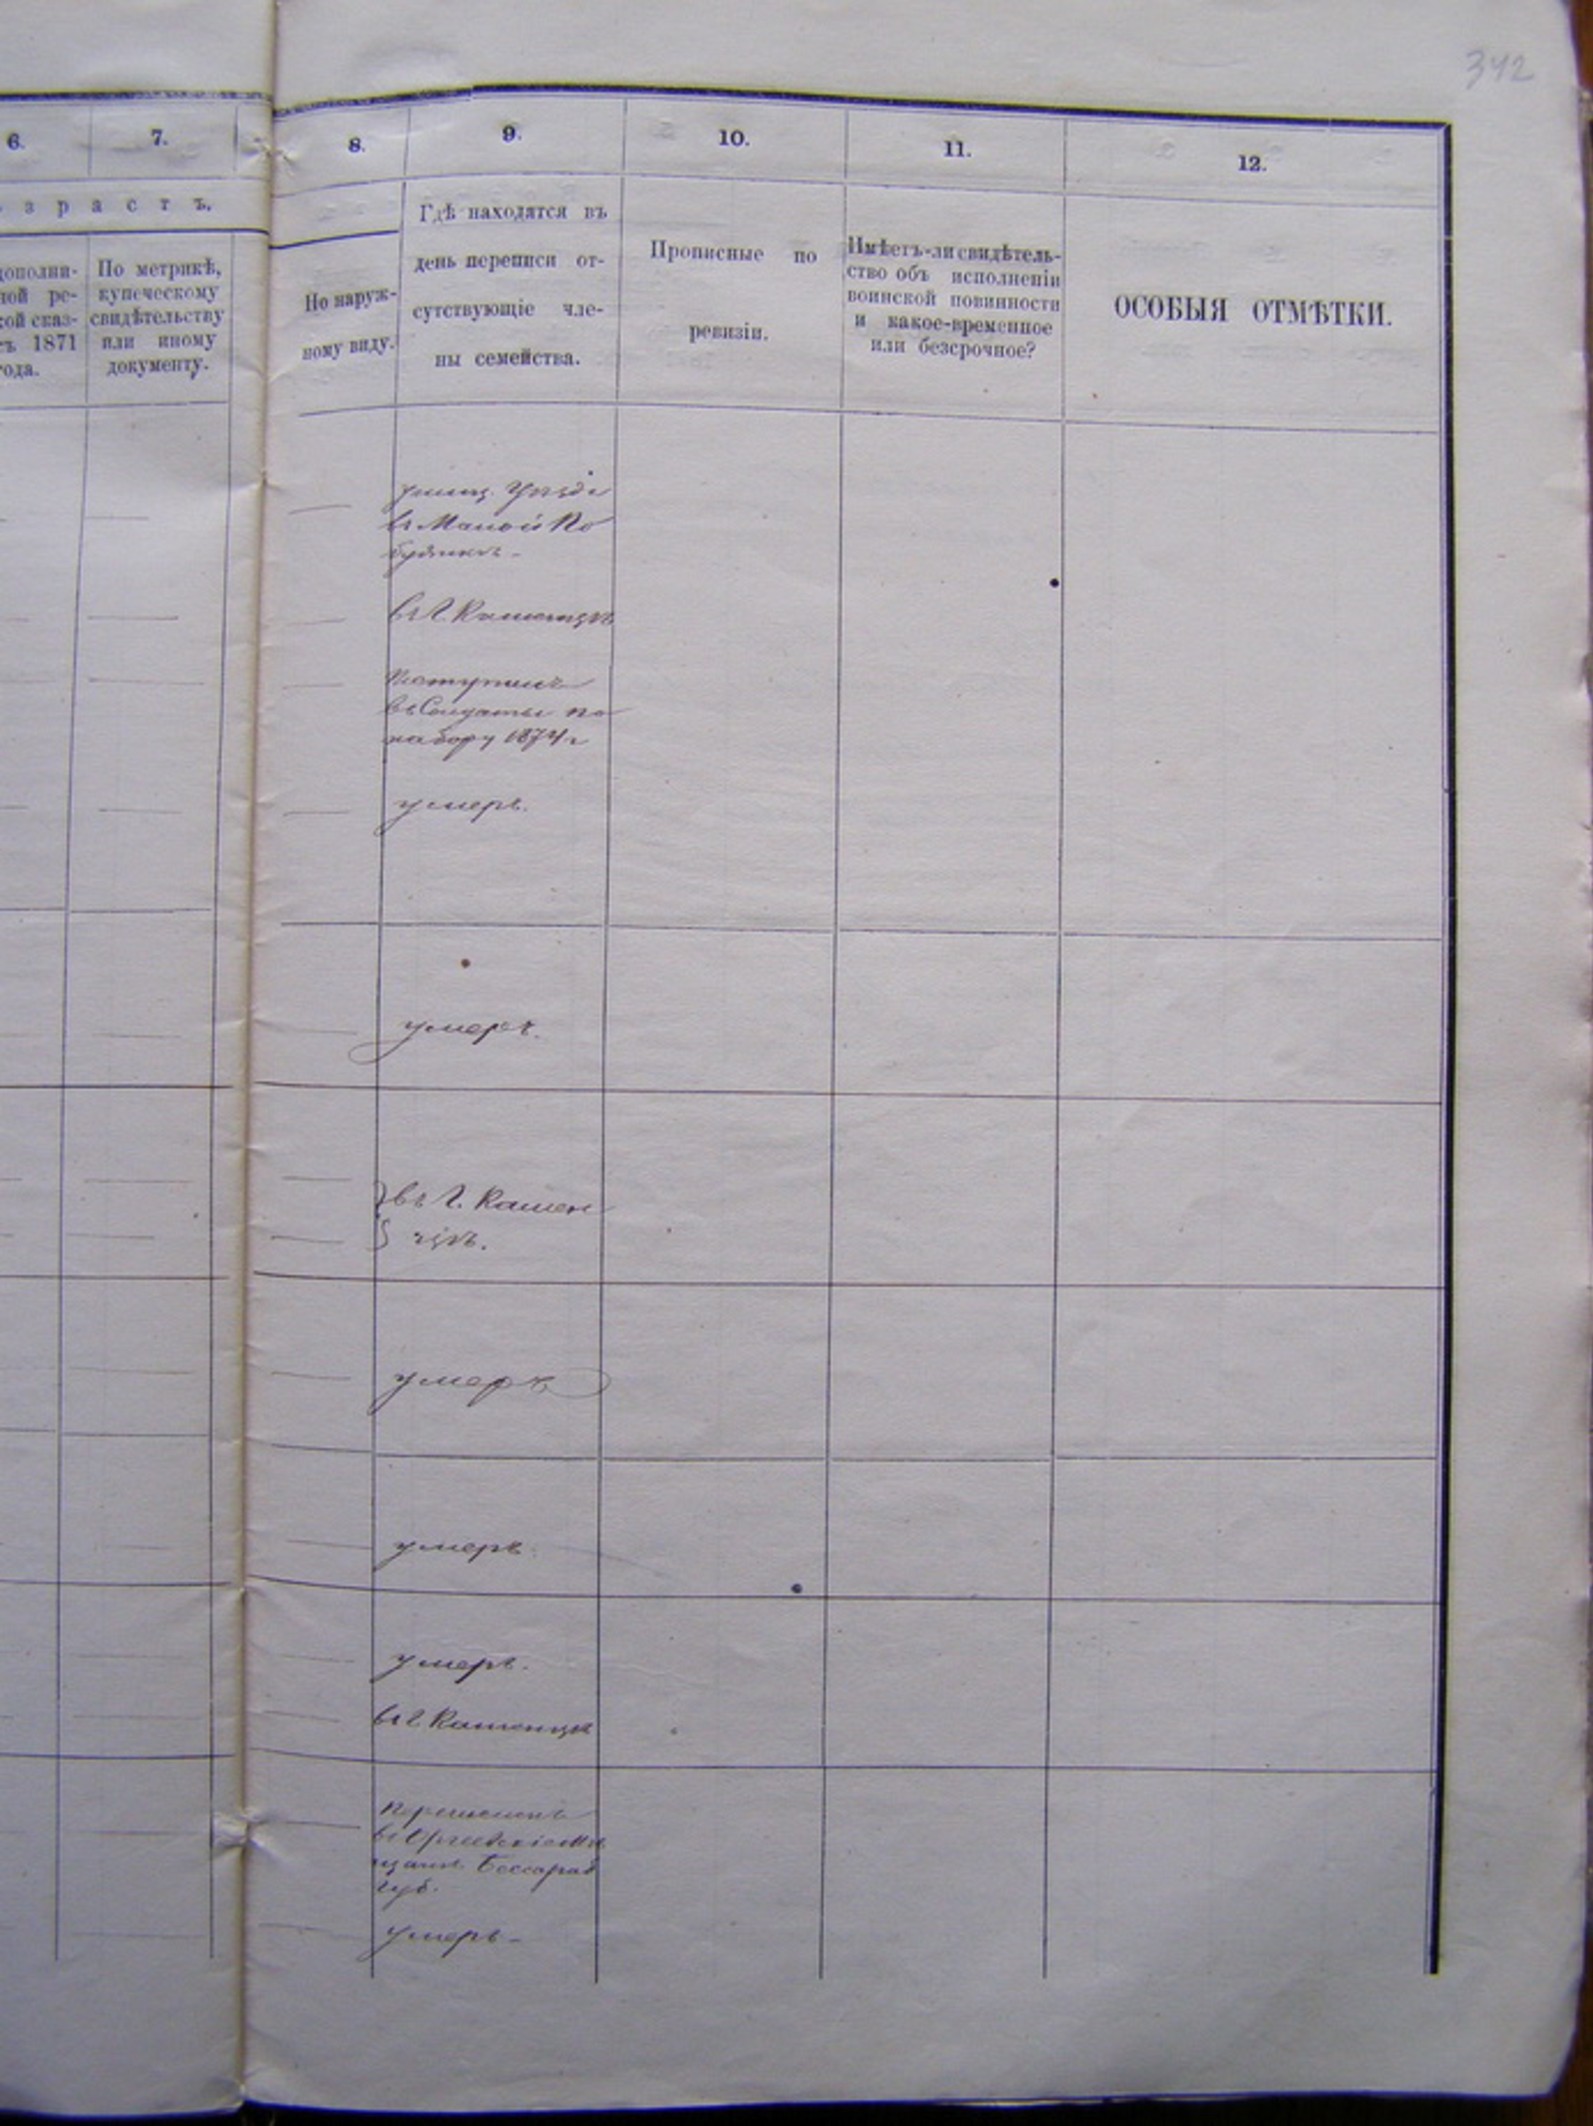 342
6.
7.
8.
9.
10.
11.
12.
зрастъ.
дополни-
ной ре-
кой сказ-
съ 1871
года.
По метрикѣ,
купеческому
свидѣтельству
или иному
документу.
По наруж-
ному виду.
Гдѣ находятся въ
день переписи от-
сутствующіе чле-
ны семейства.
Прописные по
ревизіи.
Имѣетъ-ли свидѣтель-
ство объ исполненіи
воинской повинности
и какое-временное
или безсрочное?
ОСОБЫЯ ОТМѢТКИ.
въ Малой Ко
въ Г. Каменцѣ
Поступилъ
въ Солдаты по
набору 1874 г
умеръ.
умеръ.
въ Г. Камен
цѣ.
умеръ
умеръ.
умеръ.
въ г Каменцѣ
Перечисленъ
щане Бессараб
губ.
умеръ-